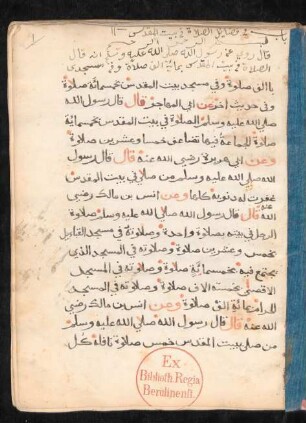 باب فضائل الصلاة في بيت المقدس
قال روي عن رسول الله صلى الله عليه وسلم انه قال
الصلاة في بيت المقدس بمائة الف صلاة وفي مسجدي
بالف صلوة وفي مسجد بيت المقدس بخمسمائة صلوة
وفي حديث اخر عن ابي المهاجر قال قال رسول الله
صلى الله عليه وسلم الصلاة في بيت المقدس بخمسمائة
صلاة للجماعة فيها تضاعف خمسا وعشرين صلاة
وعن ابي هريرة رضي الله عنه قال قال رسول
الله صلى الله عليه وسلم من صلى في بيت المقدس
غفرت له ذنوبه كلها وعن انس بن مالك رضي
الله عنه قال قال رسول الله صلى الله عليه وسلم صلوة
الرجل في بيته بصلوة واحدة وصلاوته في مسجد القبايل
بخمس وعشرين صلاوة وصلاوته في المسجد الذي
يجتمع فيه بخمسمائة صلاوة وصلاوته في المسجد
الاقصى بخمسة الاف صلاوة وصلاوته في المسجد
الحرام بمائة الف صلاوة وعن انس بن مالك رضي
الله عنه قال قال رسول الله صلى الله عليه وسلم
من صلى ببيت المقدس خمس صلاوة نافلة كل
Ex
Biblioth. Regia
Berolinensi.